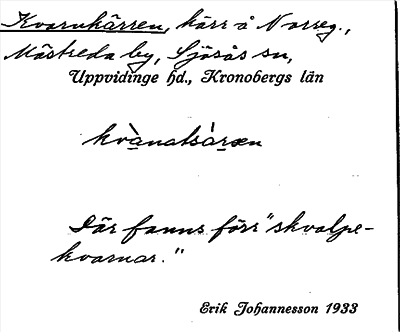 Kvarnkärren, kärr å Norreg.,
Mästreda by, Sjösås sn,
Uppvidinge hd., Kronobergs län
kvànatsàrœn
Där fanns förr "skvalpe-
kvarnar."
Erik Johannesson 1933